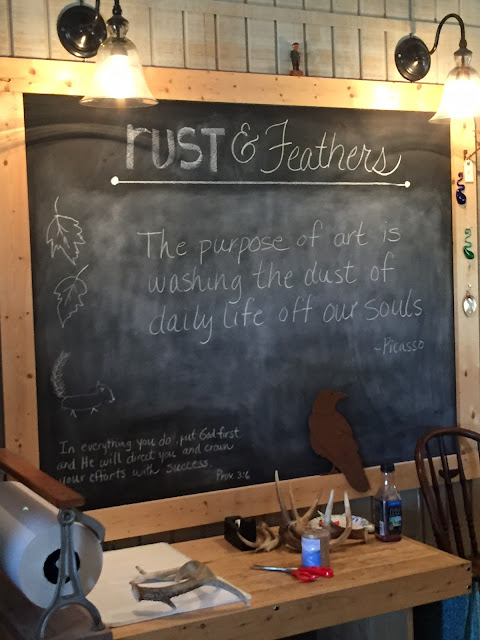 rUST & Feathers
The purpose of art is
washing the dust of
daily life off our souls
~Picasso
In everything you do put God first
and He will direct you and crown
your efforts with success.
Prov. 3:6